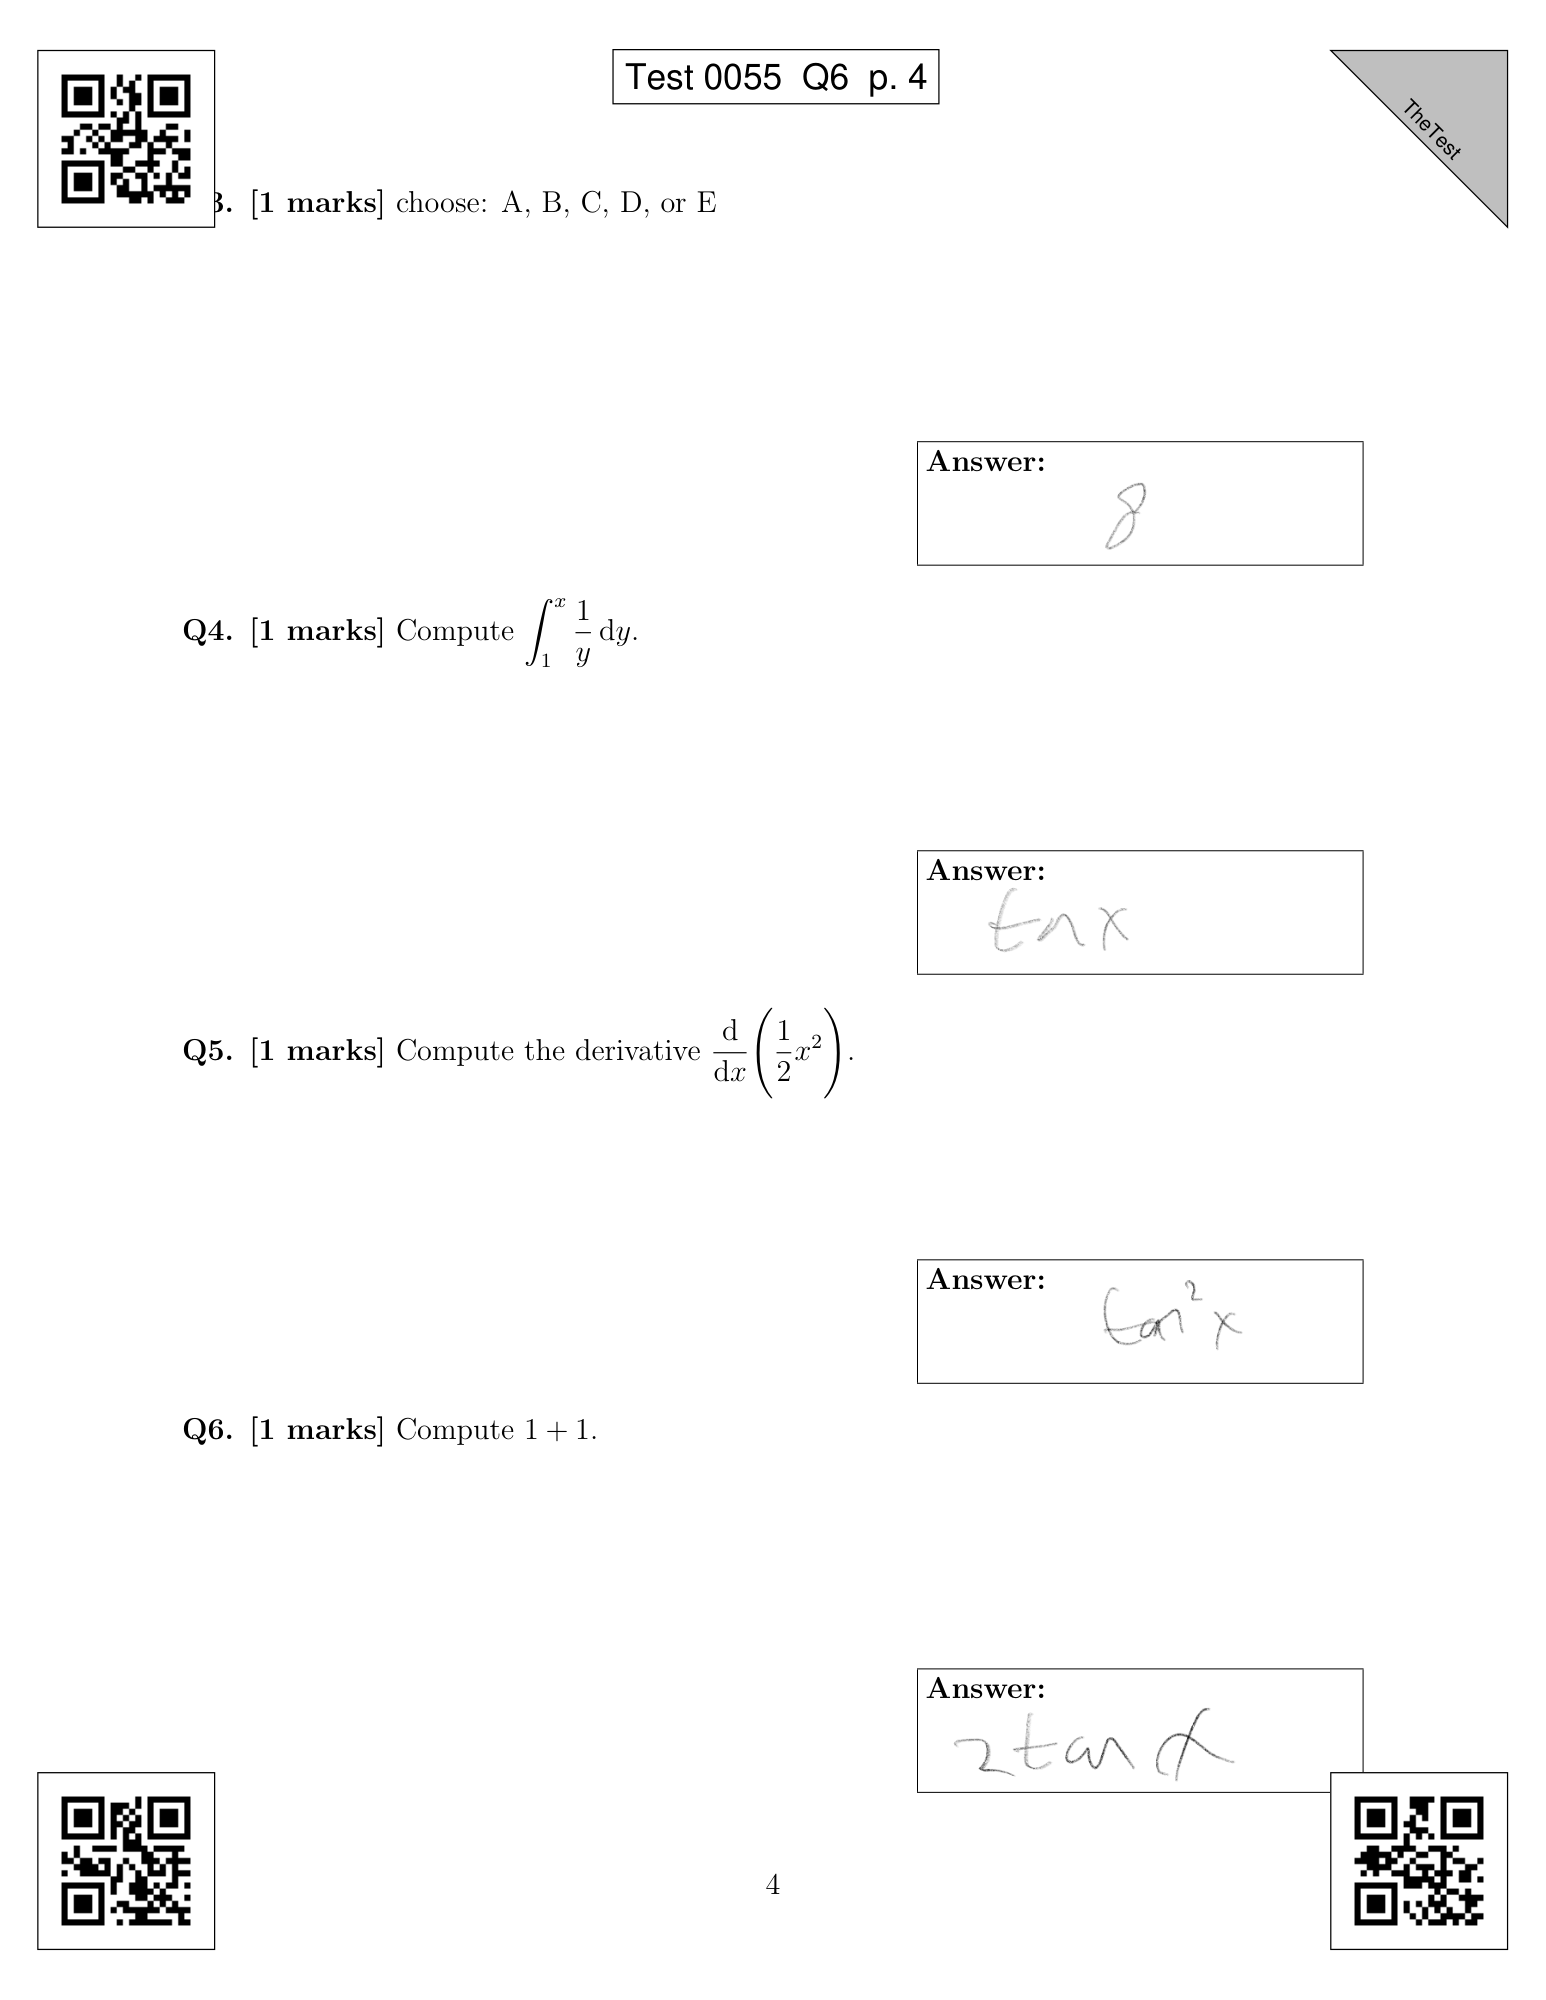 Test 0055 Q6 p. 4
TheTest
3. [1 marks] choose: A, B, C, D, or E
Answer:
8
Q4. [1 marks] Compute ∫₁ˣ 1/y dy.
Answer:
tan x
Q5. [1 marks] Compute the derivative d/dx(1/2 x²).
Answer:
tan² x
Q6. [1 marks] Compute 1 + 1.
Answer:
2 tan x
4